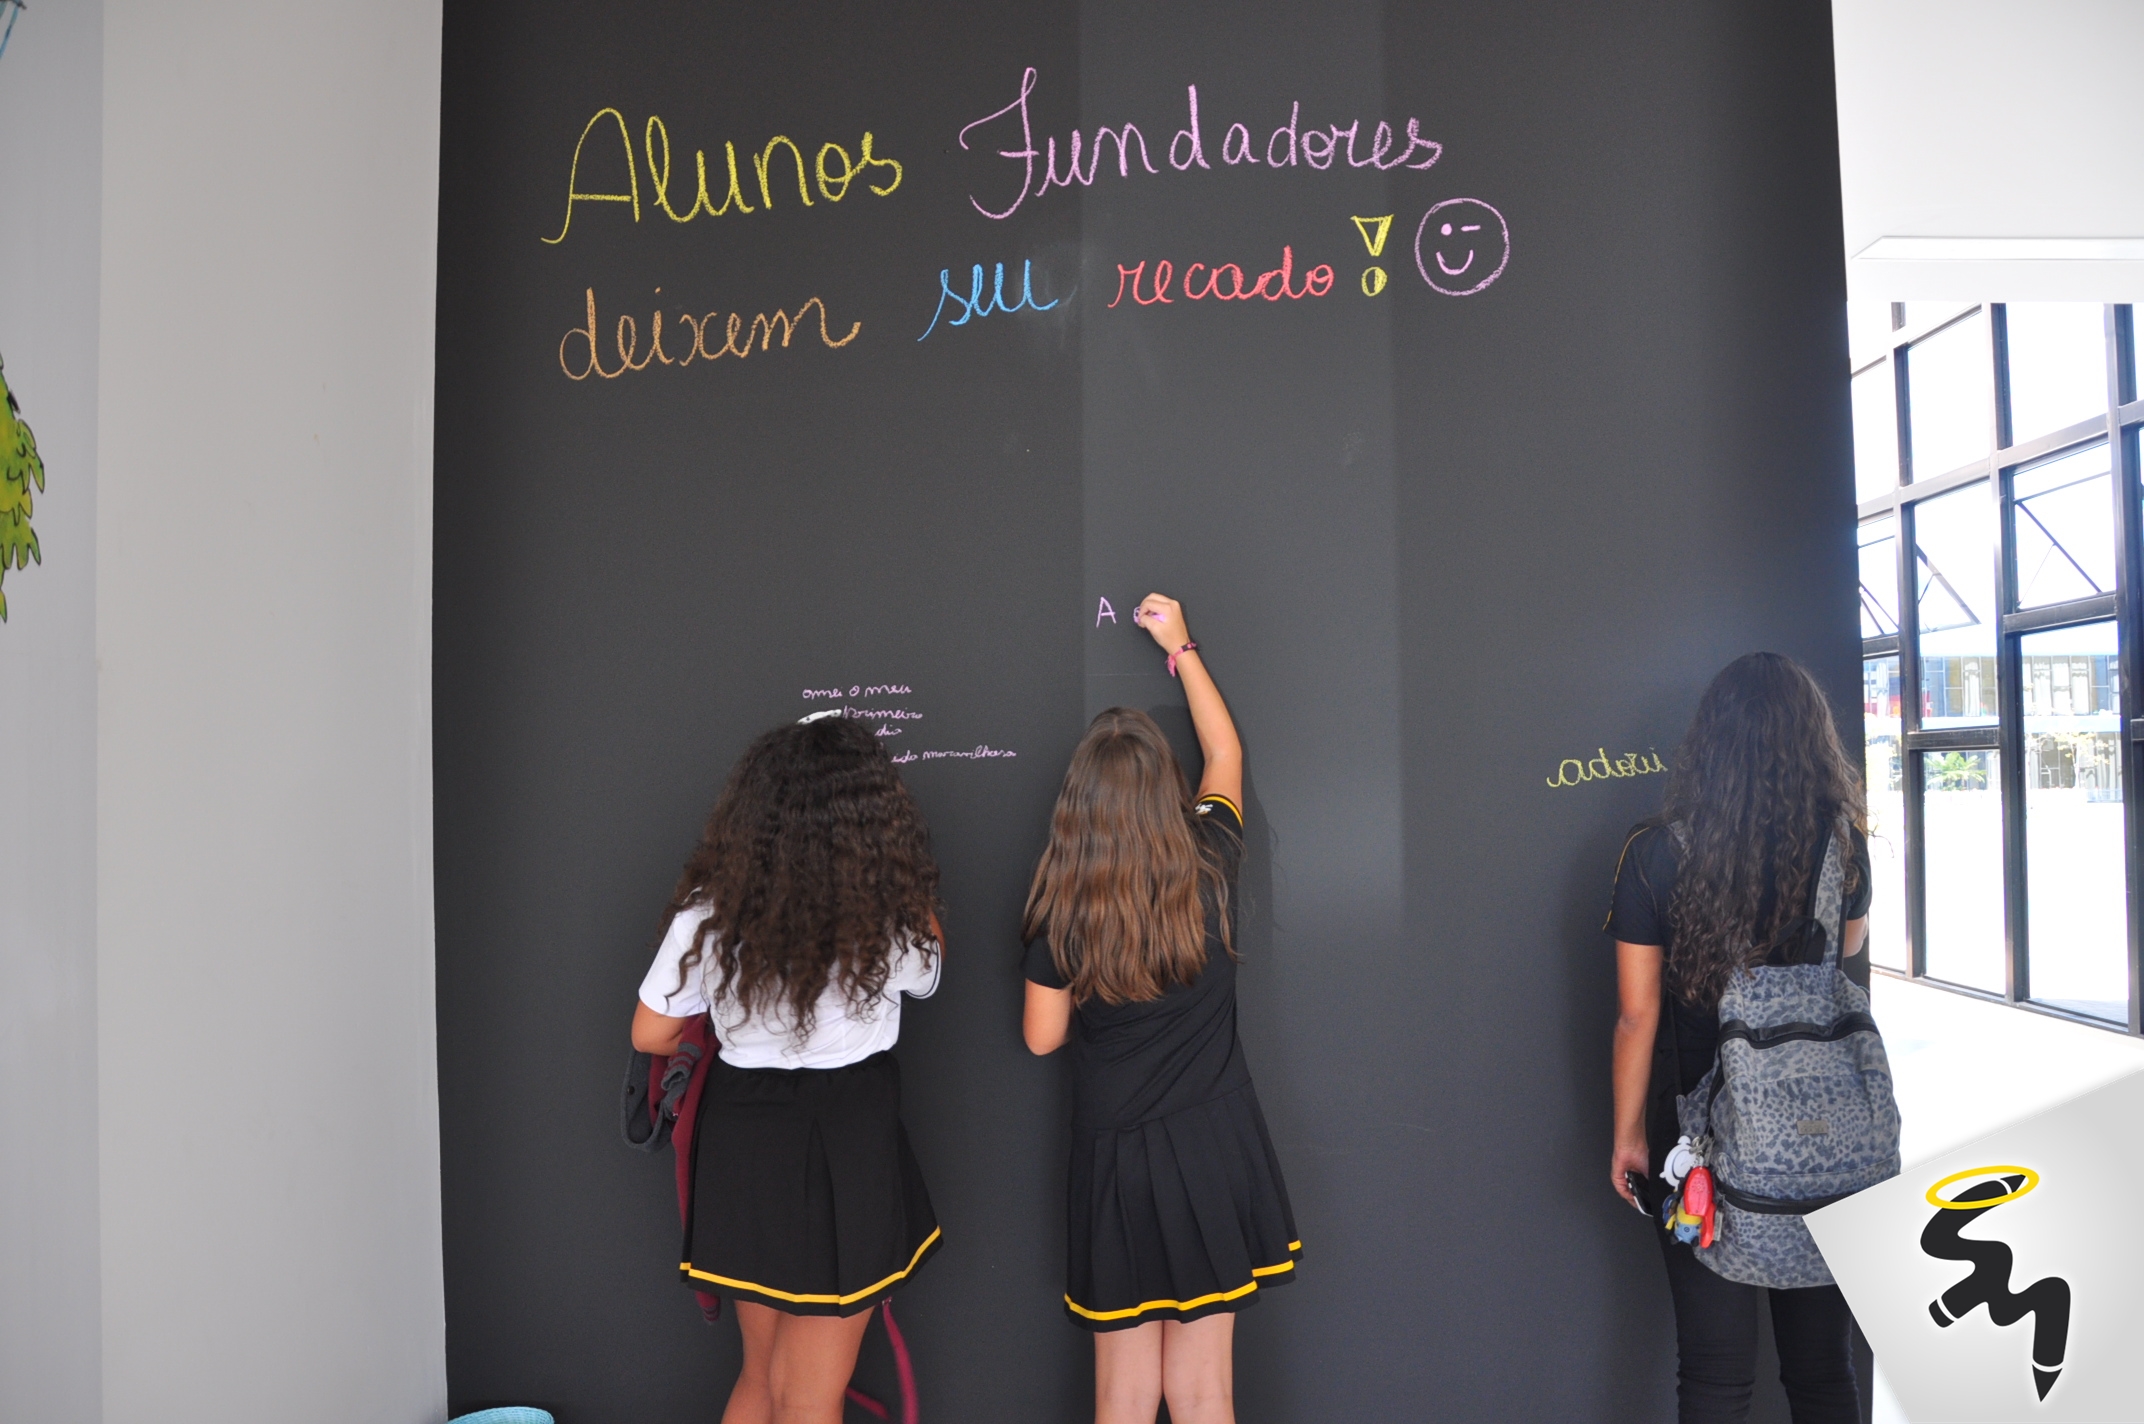 Alunos Fundadores
deixem seu recado!
A
amei o meu
primeiro
dia
maravilhosa
adorei